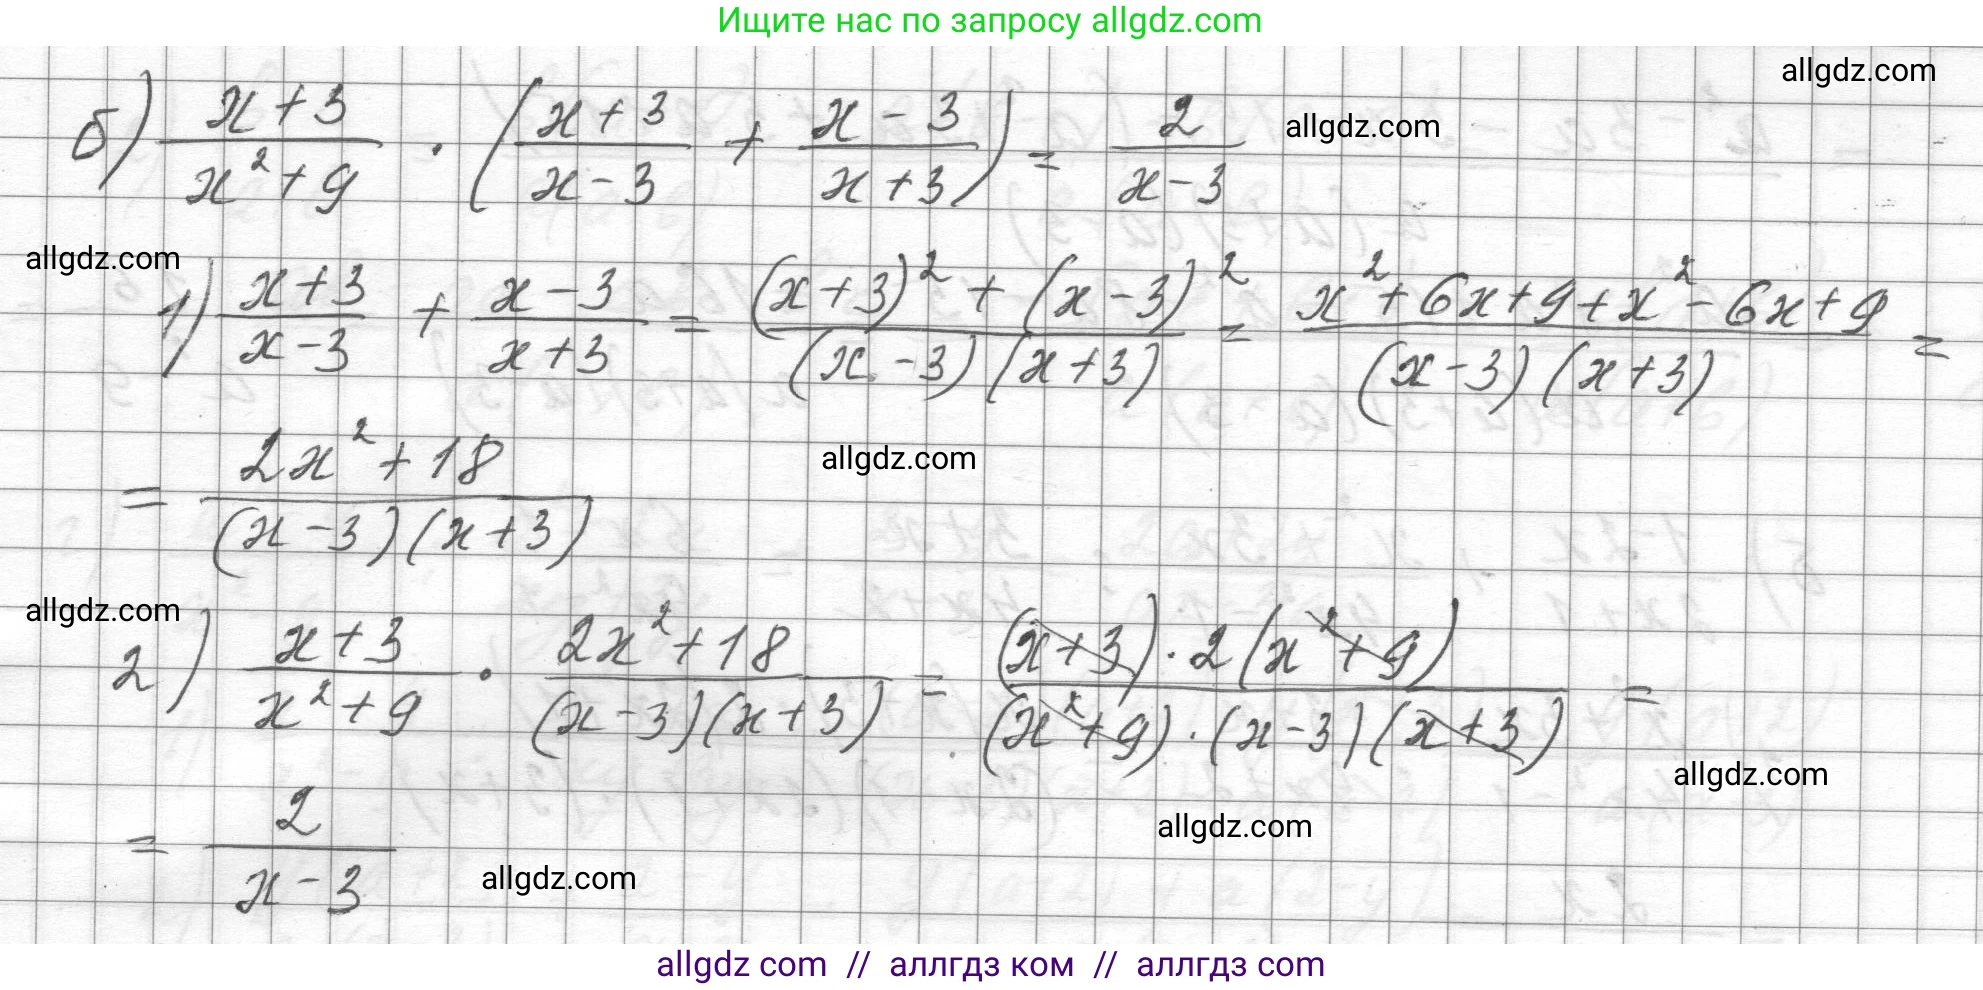 Ищите нас по запросу allgdz.com
allgdz.com
б) (x+3)/(x²+9) · ((x+3)/(x-3) + (x-3)/(x+3)) = 2/(x-3)
allgdz.com
allgdz.com
1) (x+3)/(x-3) + (x-3)/(x+3) = ((x+3)² + (x-3)²)/((x-3)(x+3)) = (x²+6x+9+x²-6x+9)/((x-3)(x+3)) =
= (2x²+18)/((x-3)(x+3))
allgdz.com
allgdz.com
2) (x+3)/(x²+9) · (2x²+18)/((x-3)(x+3)) = ((x+3)·2(x²+9))/((x²+9)·(x-3)(x+3)) =
allgdz.com
allgdz.com
= 2/(x-3)
allgdz.com
allgdz com // аллгдз ком // аллгдз com